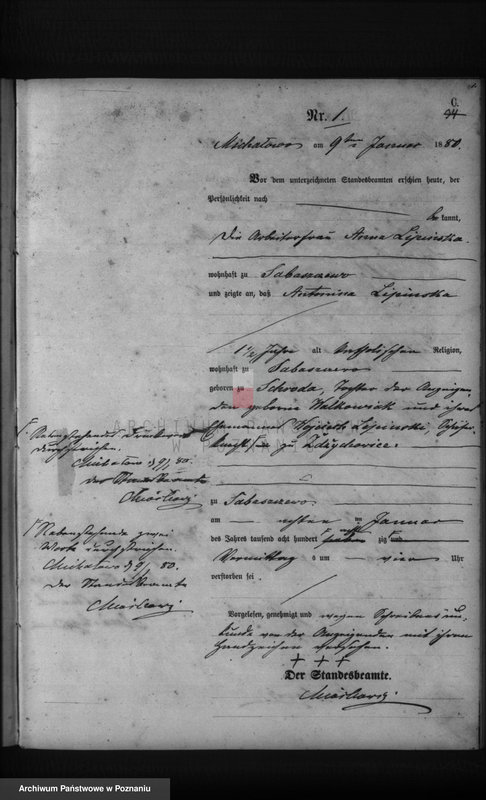 C.
94
Nr. 1.
Michałowo am 9ten Januar 1880.
Vor dem unterzeichneten Standesbeamten erschien heute, der
Persönlichkeit nach
kannt,
Die Arbeiterfrau Anna Lipinska
wohnhaft zu Sabaszczewo
und zeigte an, daß Antonina Lipinska
1 1/2 Jahre alt katholischen Religion,
wohnhaft zu Sabaszczewo
geboren zu Schroda, Tochter der Anzeigen-
den geborne Walkowiak und ihres
Ehemannes Wojciech Lipinski,
zu Zdzychowice.
zu Sabaszczewo
am achten Januar
des Jahres tausend acht hundert acht zig und
Vormittag s um vier Uhr
verstorben sei
Vorgelesen, genehmigt und wegen Schreibensun-
kunde von der Anzeigenden mit ihrem
Handzeichen versehen.
+ + +
Der Standesbeamte.
Nebenstehendes Druckwort
durchstrichen.
Michałowo d 9/1 80.
Der Standesbeamte
Nebenstehende zwei
Worte durchstrichen.
Michałowo d 9/1 80.
Der Standesbeamte
ARCHIWUM
W POZNANIU
Archiwum Państwowe w Poznaniu